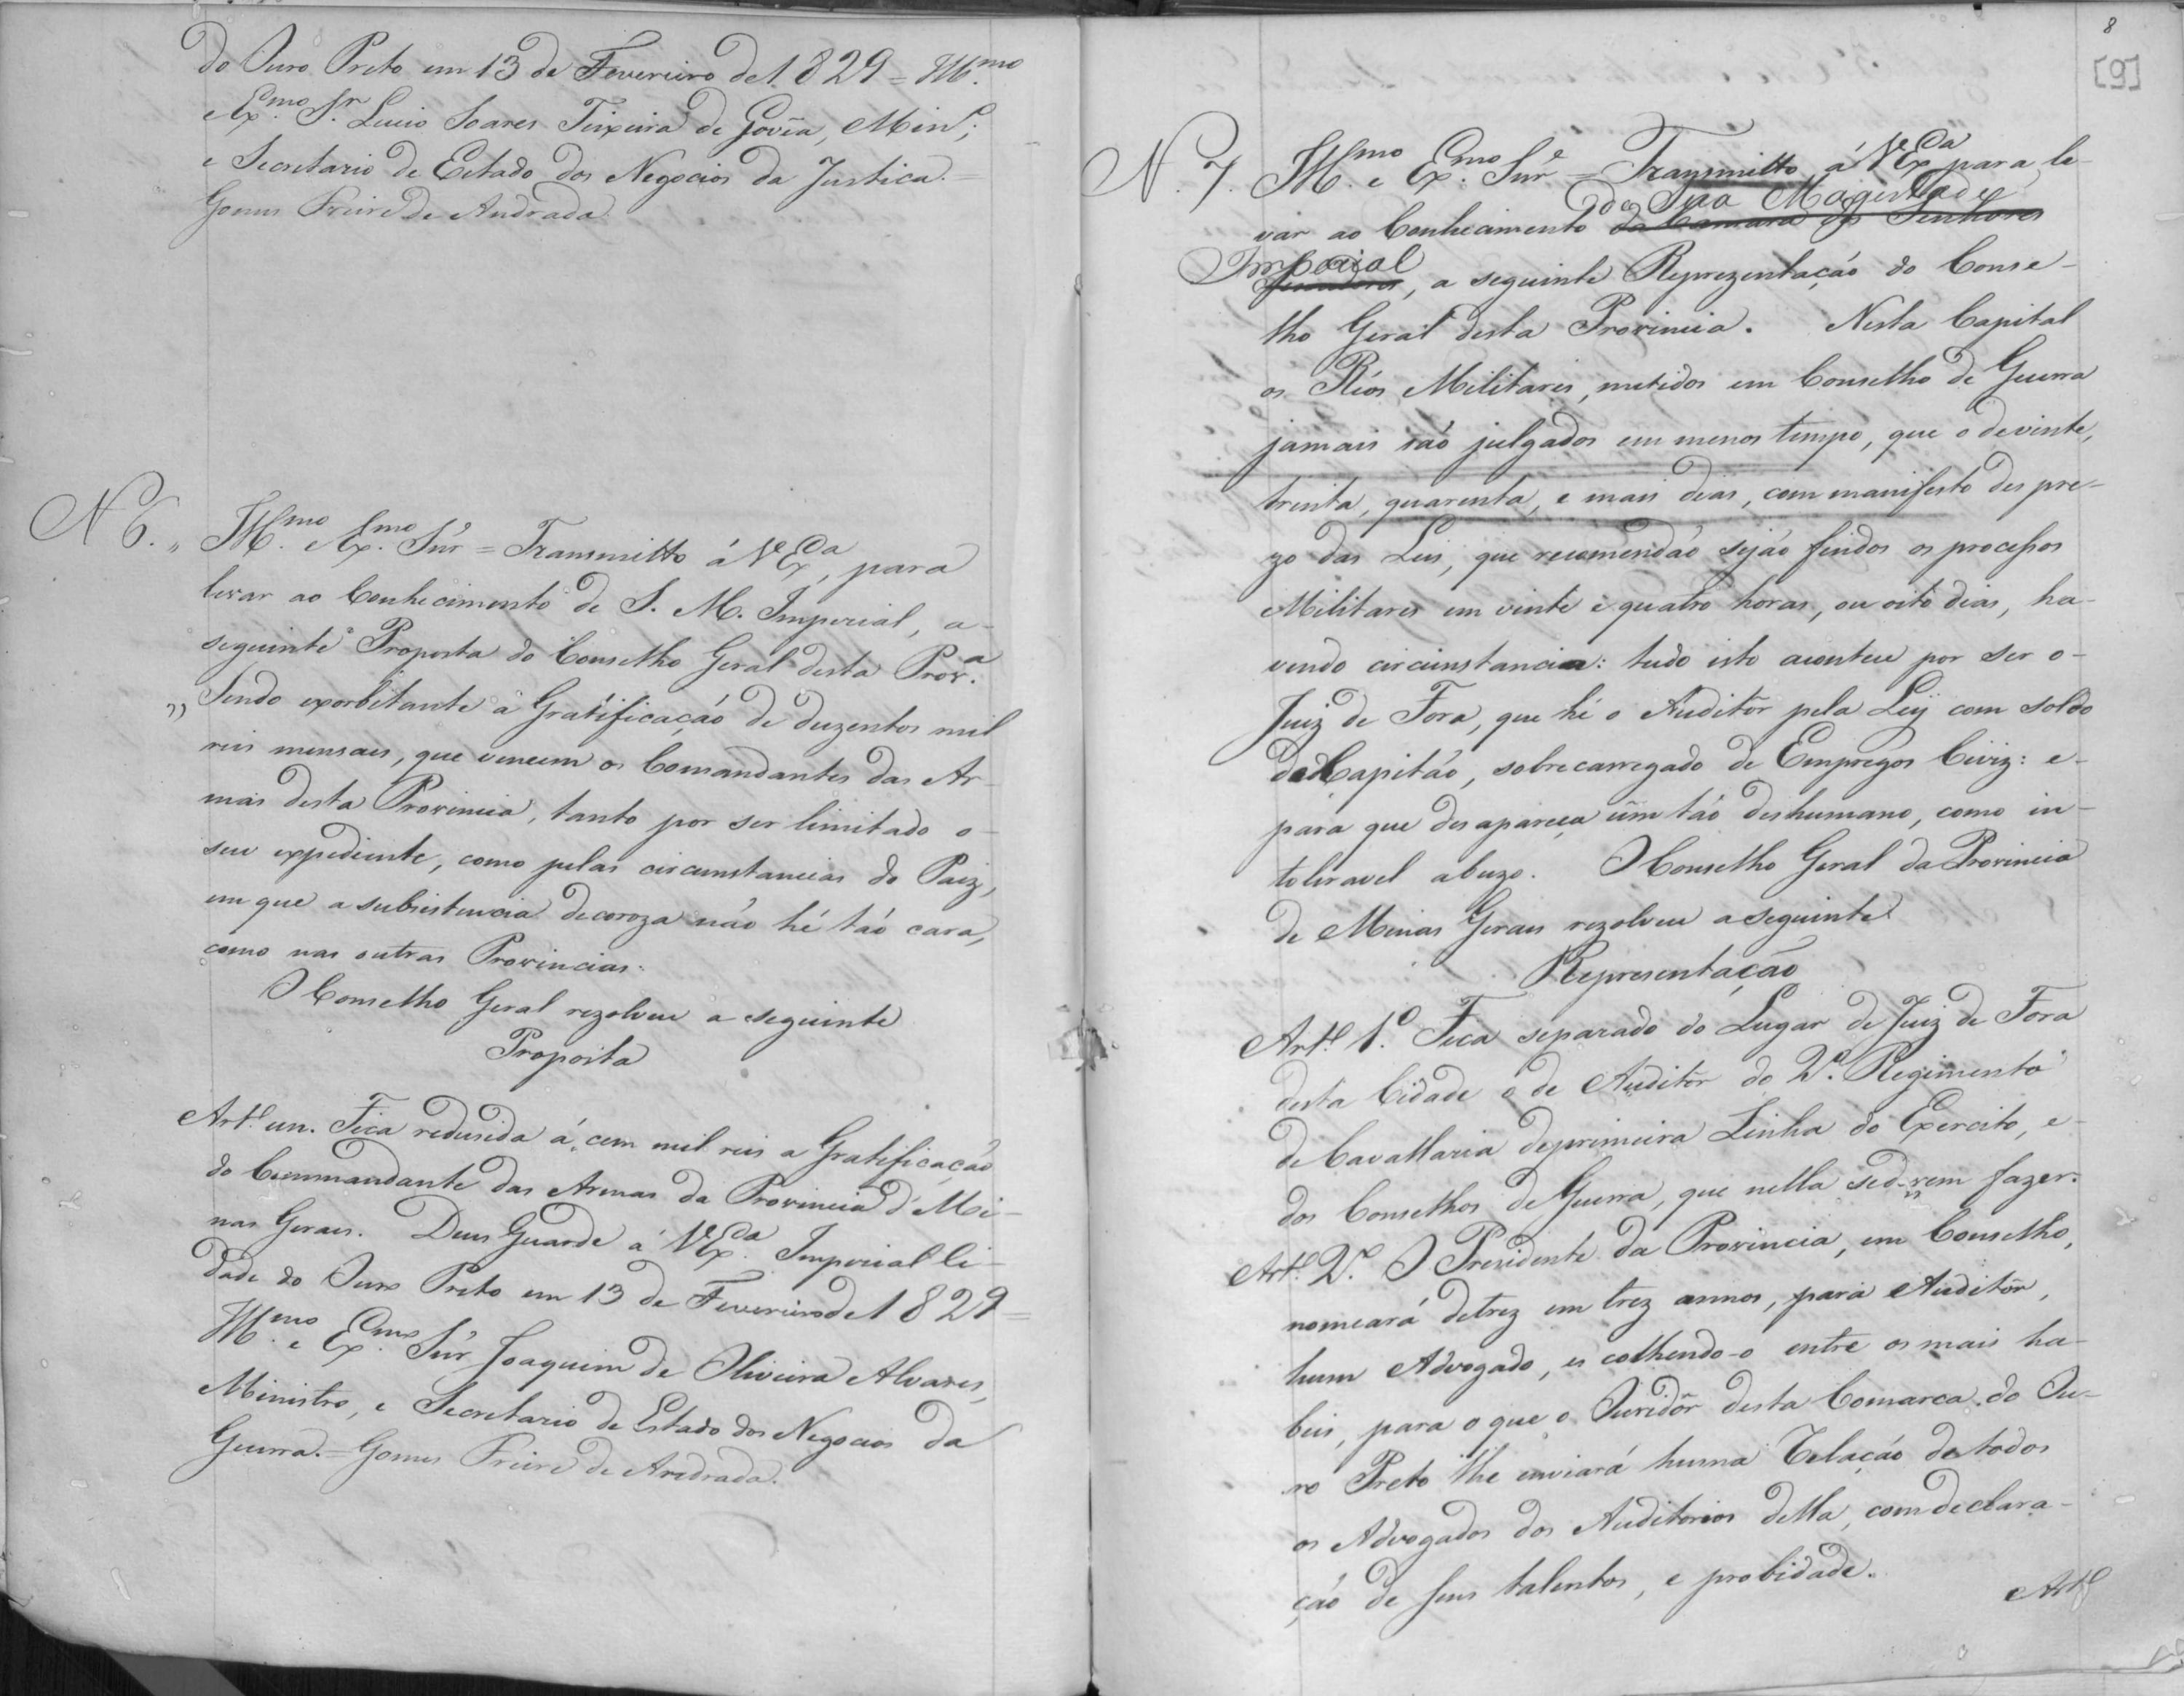 do Ouro Preto em 13 de Fevereiro de 1829 = Ill.mo
e Ex.mo S.r Lucio Soares Teixeira de Govêa, Min.o,
e Secretario de Estado dos Negocios da Justica. =
Gomes Freire de Andrada
N 6. " Ill.mo e Ex.mo Snr' = Transmitto á V Ex.ca, para
levar ao Conhecimento de S. M. Imperial, a-
seguinte Proposta do Conselho Geral desta Prov.a
" Sendo exorbitante a Gratificação de duzentos mil
reis mensaes, que vencem os Comandantes das Ar-
mas desta Provincia, tanto por ser limitado o-
seu expediente, como pelas circumstancias do Paiz,
em que a subsistencia decoroza não hé tão cara,
como nas outras Provincias.
O Conselho Geral rezolveu a seguinte
Proposta
Art.o un. Fica redusida á cem mil reis a Gratificação
do Commandante das Armas da Provincia d' Mi-
nas Geraes. Deus Guarde a V Ex.ca Imperial Ci-
dade do Ouro Preto em 13 de Fevereiro de 1829 =
Ill.mo e Ex.mo Snr' Joaquim de Oliveira Alvares,
Ministro, e Secretario de Estado dos Negocios da
Guerra. = Gomes Freire de Andrada.
8
[9]
N. 7. Ill.mo e Ex.mo Snr' = Transmitto á V Ex.ca para le-
de Sua Magestade
var ao Conhecimento da Camara dos Senhores
Imperial
Senadores, a seguinte Reprezentação do Conse-
lho Geral desta Provincia. Nesta Capital
os Réos Militares, metidos em Conselho de Guerra
jamais são julgados em menos tempo, que o de vinte,
trinta, quarenta, e mais dias, com manifesto des pre-
zo das Leis, que recomendão sejão findos os processos
Militares em vinte e quatro horas, ou oito dias, ha-
vendo circunstancia: tudo isto acontece por ser o-
Juiz de Fora, que hé o Auditor pela Ley com soldo
de Capitão, sobrecarregado de Empregos Civiz: e-
para que desapareça um tão deshumano, como in-
toleravel abuzo. O Conselho Geral da Provincia
de Minas Geraes rezolveu a seguinte
Representação
Art.o 1.o Fica separado do Lugar de Juiz de Fora
desta Cidade o de Auditor do 2.o Regimento
de Cavallaria de primeira Linha do Exercito, e-
dos Conselhos de Guerra, que nella se d-rem fazer.
Art.o 2.o O Presidente da Provincia, em Conselho,
nomeará de trez em trez annos, para Auditor,
hum Advogado, es colhendo-o entre os mais ha-
beis, para o que o Ouvidor desta Comarca do Ou-
ro Preto lhe enviará huma Relação de todos
os Advogados dos Auditorios della, com declara-
ção de seus talentos, e probidade.
Art.o